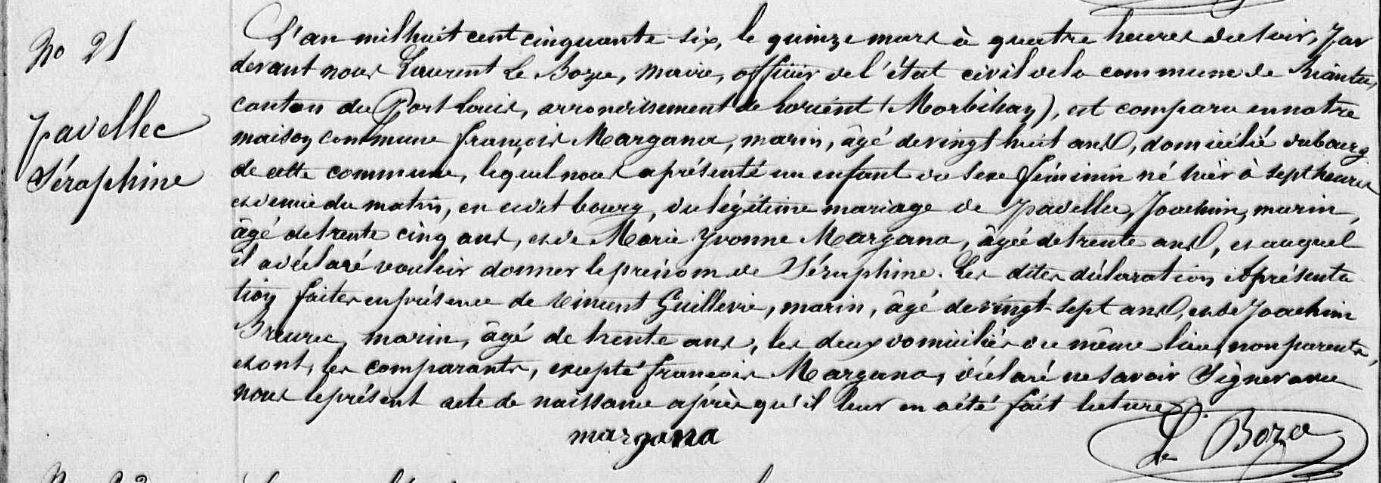 No 21
Pavellec
Séraphine
L'an mil huit cent cinquante-six, le quinze mars à quatre heures du soir, par
devant nous Laurent Le Bozec, maire, officier de l'état civil de la commune de Riantec,
canton du Port Louis, arrondissement de Lorient (Morbihan), est comparu en notre
maison commune François Margana, marin, âgé de vingt huit ans, domicilié du bourg
de cette commune, lequel nous a présenté un enfant du sexe féminin né hier à sept heures
et demie du matin, en ce dit bourg, du légitime mariage de Pavellec, Joachim, marin,
âgé de trente cinq ans, et de Marie Yvonne Margana, âgée de trente ans, et auquel
il a déclaré vouloir donner le prénom de Séraphine. Les dites déclaration et présenta
tion faites en présence de Vincent Guillevic, marin, âgé de vingt-sept ans, et de Joachim
marin, âgé de trente ans, les deux domiciliés du même lieu, non parents,
et ont, les comparants, excepté François Margana, déclaré ne savoir signer avec
nous le présent acte de naissance après qu'il leur en a été fait lecture.
margana
Le Bozec